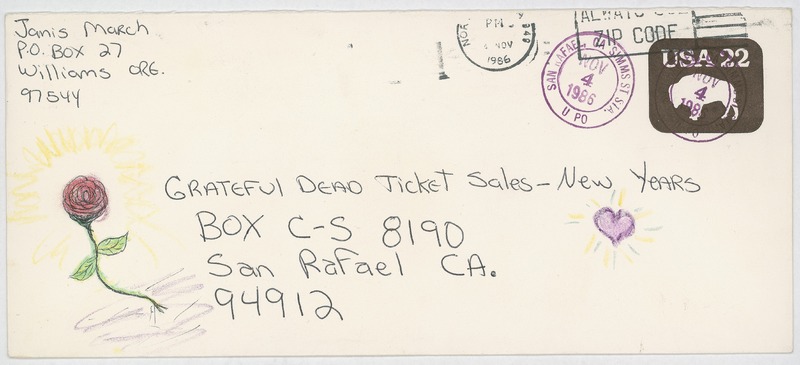 Janis March
P.O. BOX 27
Williams ORG.
97544
PM
NOV
1986
ZIP CODE
SAN RAFAEL, CA SIMMS ST STA.
NOV
4
1986
U PO
USA 22
NOV
4
GRATEFUL DEAD TICKET Sales - New YEARS
BOX C-S 8190
San Rafael CA.
94912